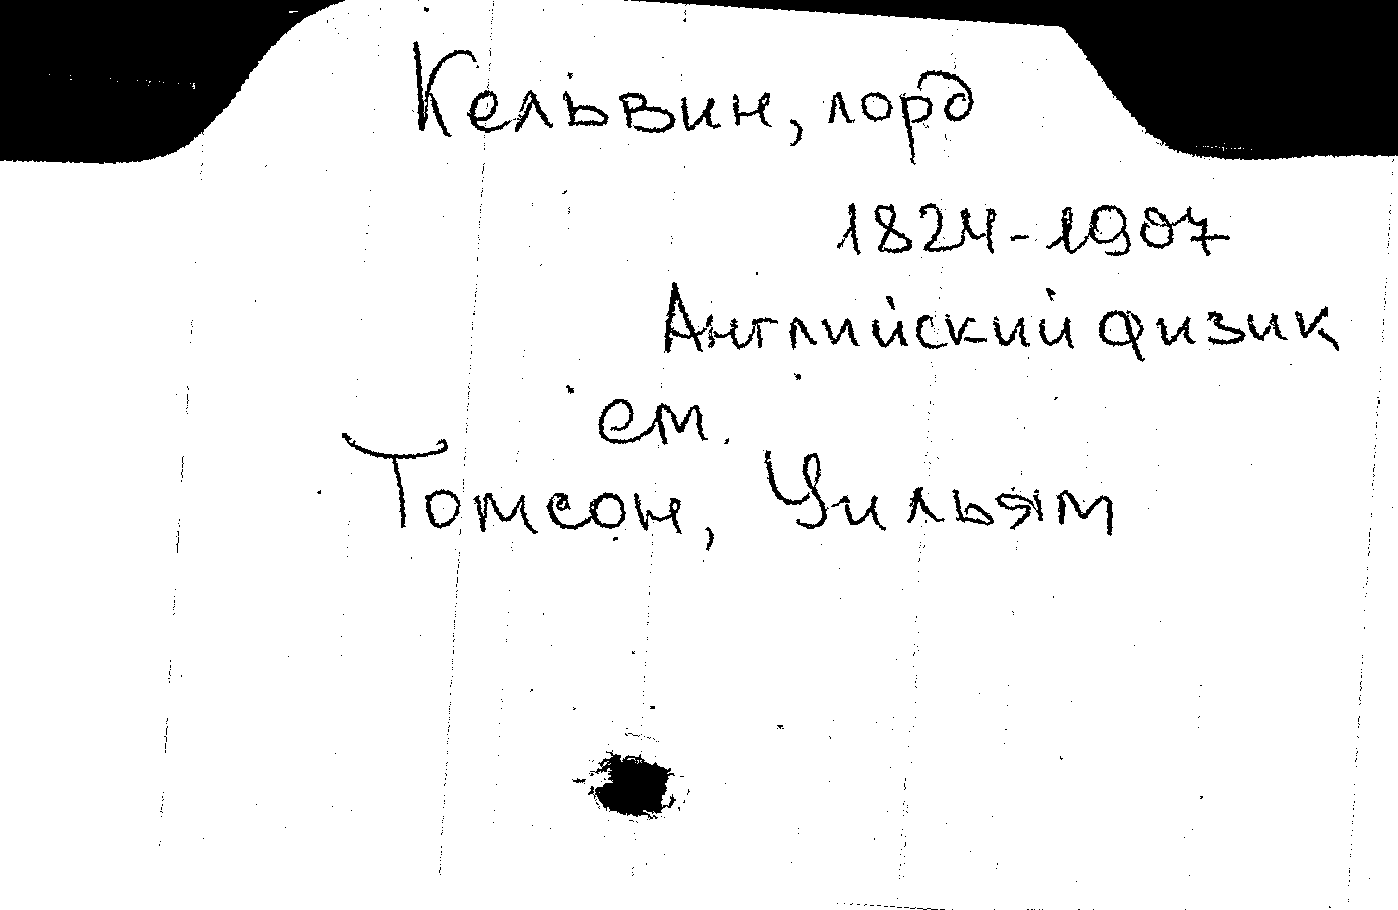 Кельвин, лорд
1824-1907
Английский физик
см.
Томсон, Уильям